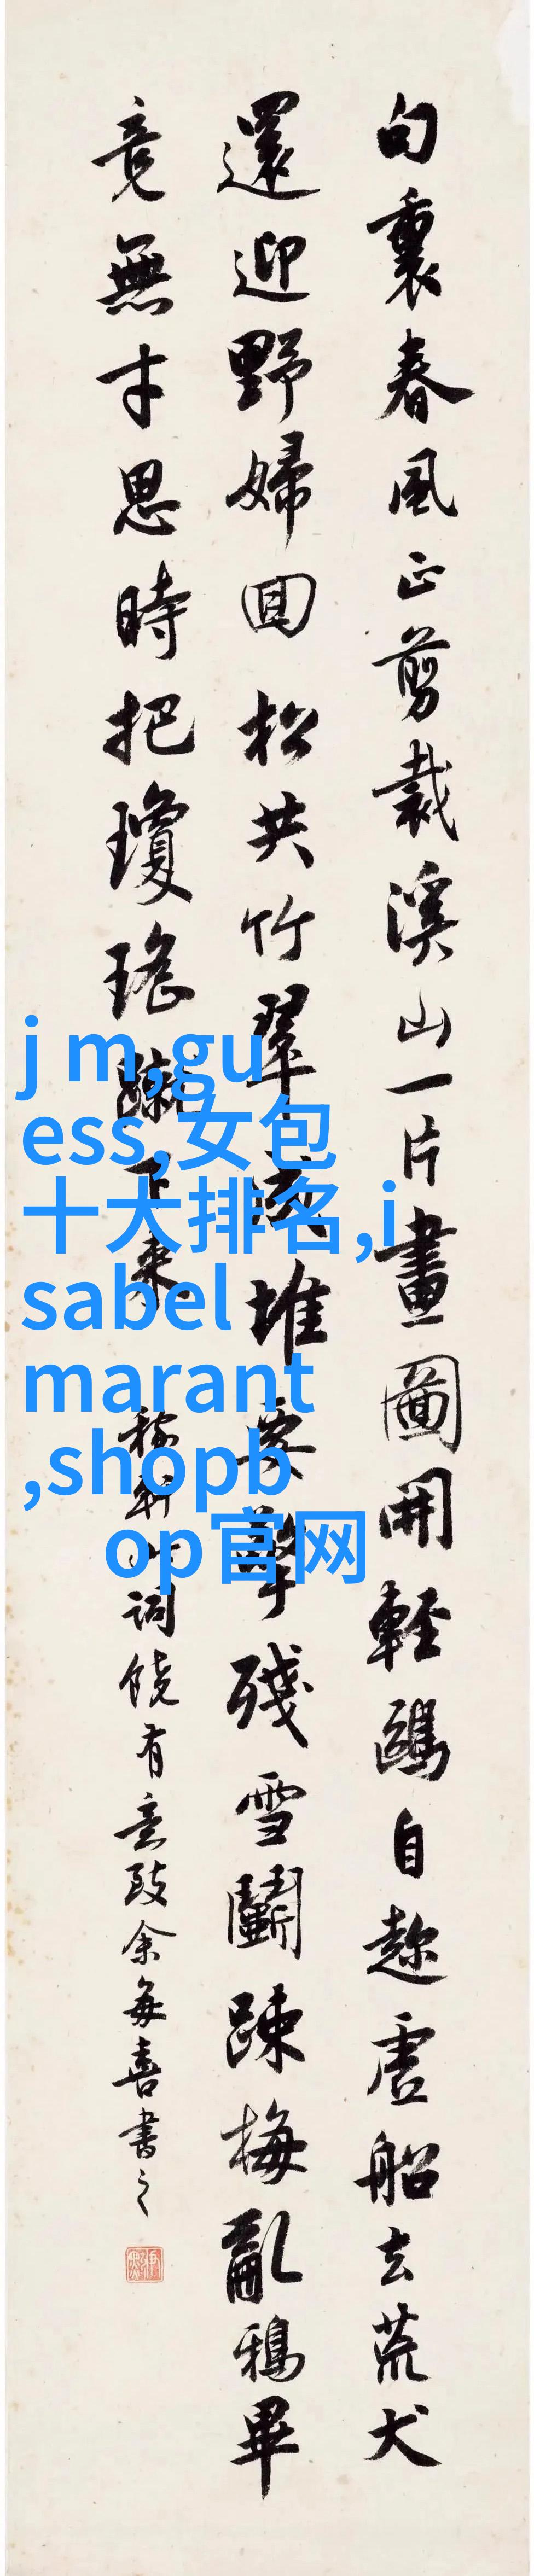 句裏春風正剪裁溪山一片畫圖開輕鷗自趁虛船去荒犬
還迎野婦回松共竹翠成堆要擎殘雪鬭踈梅亂鴉畢
竟無才思時把瓊瑤蹴下來
稼軒此詞饒有意致余每喜書之
j m,gu
ess,女包
十大排名,i
sabel
marant
,shopb
op官网